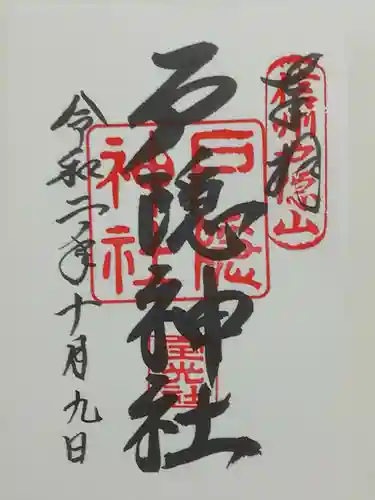 奉拝
信州戸隠山
戸隠神社
戸隠
神社
令和二年十月九日